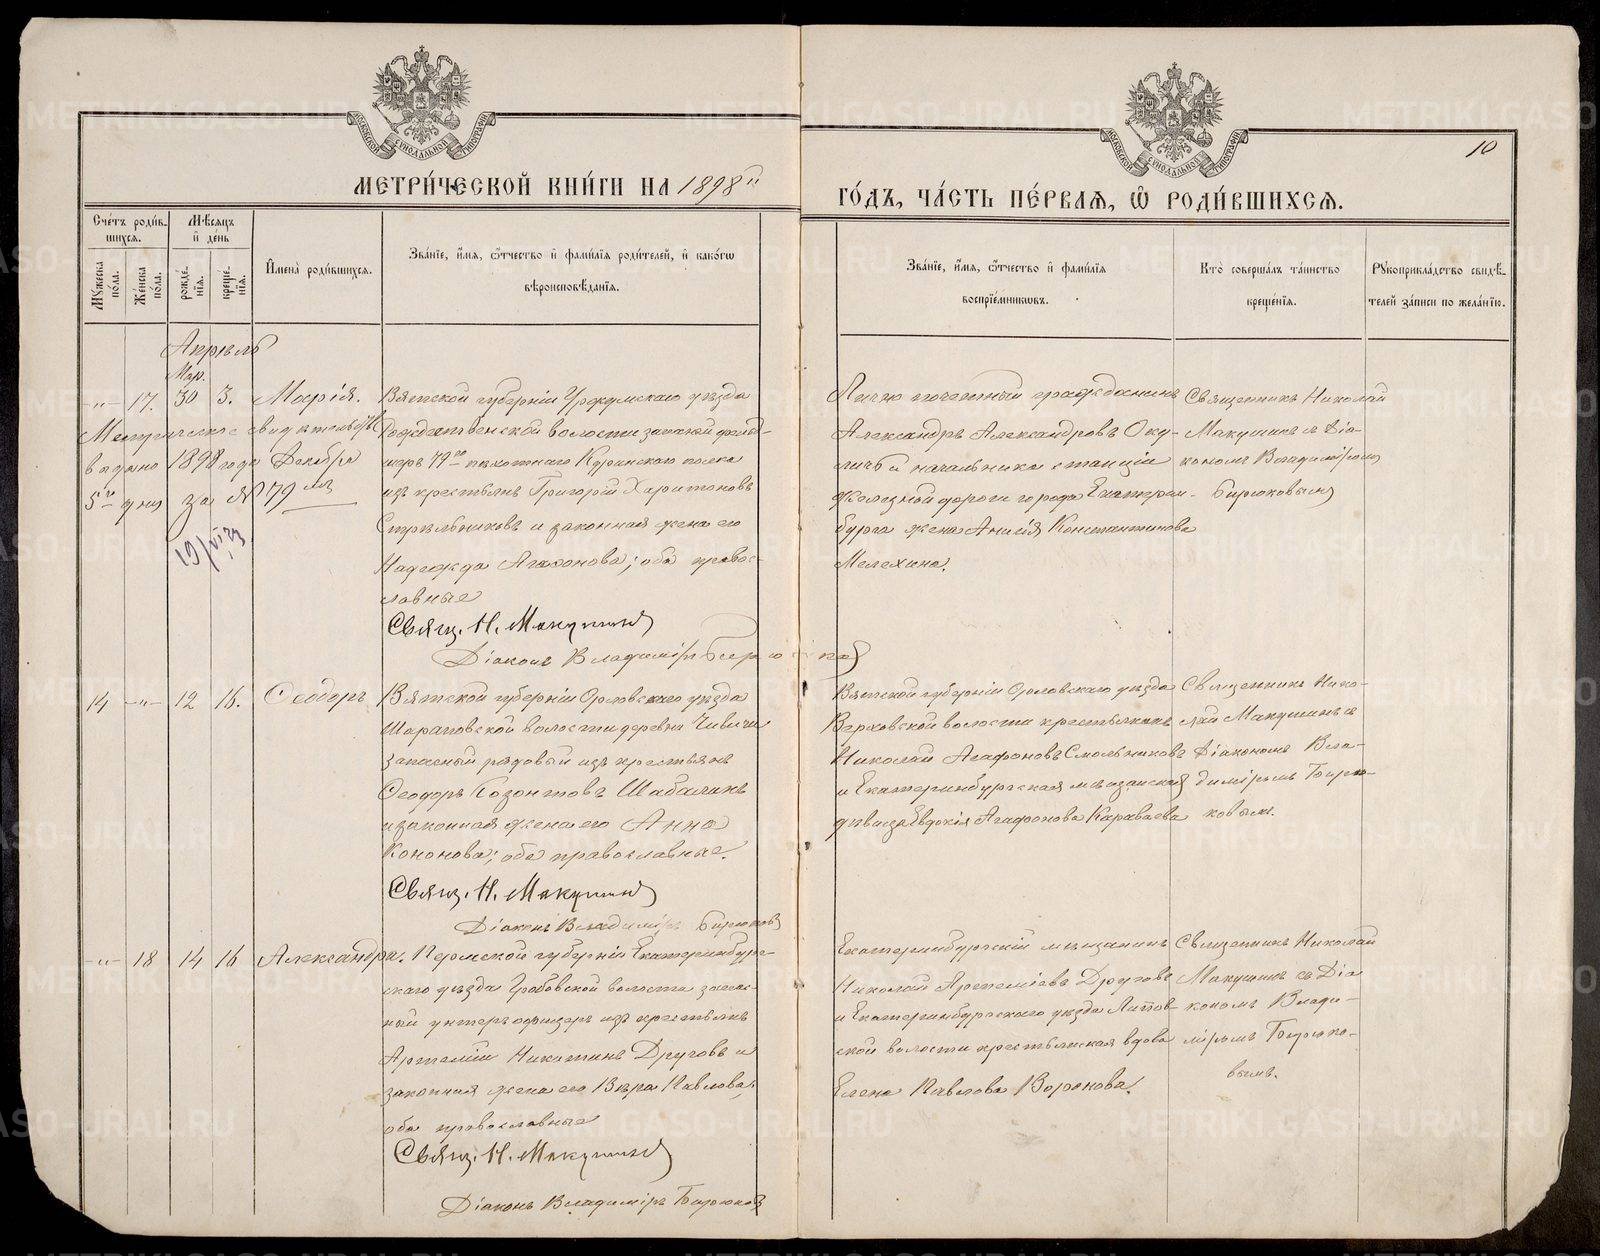 МОСКОВСКОЙ СѴНОДАЛЬНОЙ ТИПОГРАФІИ
МОСКОВСКОЙ СѴНОДАЛЬНОЙ ТИПОГРАФІИ
10
МЕТРИ́ЧЕСКОЙ КНИ́ГИ НА 1898й
ГО́ДЪ, ЧА́СТЬ ПЕ́РВАѦ, Ѡ҆ РОДИ́ВШИХСѦ.
Сче́тъ роди́в-
шихсѧ.
Мѣ́сѧцъ
и҆ де́нь
Мꙋжеска по́ла.
Же́нска по́ла.
рожде́-нїѧ.
креще́-нїѧ.
И҆мена̀ роди́вшихсѧ.
Зва́нїе, и҆́мѧ, ѻ҆́тчество и҆ фами́лїѧ роди́телей, и҆ како́гѡ
вѣроисповѣ́данїѧ.
Зва́нїе, и҆́мѧ, ѻ҆́тчество и҆ фами́лїѧ
воспрїе́мникѡвъ.
Кто̀ соверша́лъ та́инство
креще́нїѧ.
Рꙋкоприкла́дство свидѣ́-
телей за́писи по жела́нїю.
Апрѣль
Мар.
-"- 17. 30 3. Марія.
Метрическое свидѣтельство
выдано 1898 года Декабря
5го дня за № 79мъ
Вятской губерніи Уржумскаго уѣзда
Рождественской волости запасный фельд-
шеръ 79го пѣхотнаго Куринскаго полка
изъ крестьянъ Григорій Харитоновъ
Стрѣльниковъ и законная жена его
Надежда Агаѳонова; оба правос-
лавные
Свящ. Н. Макушинъ
Діаконъ Владиміръ Бирюковъ
Лично почетный гражданинъ
Александръ Александровъ Оку-
личъ и начальника станціи
желѣзной дороги города Екатерин-
бурга жена Константинова
Мелехина.
Священникъ Николай
Макушинъ съ Діа-
кономъ Владиміромъ
Бирюковымъ
14 -"- 12 16. Ѳеодоръ
Вятской губерніи Орловскаго уѣзда
Шараповской волости деревни
запасный рядовый изъ крестьянъ
Ѳеодоръ Шабалинъ
и законная жена его Анна
Кононова; оба православные.
Свящ. Н. Макушинъ
Діаконъ Владиміръ Бирюковъ
Вятской губерніи Орловскаго уѣзда
Верховской волости крестьянинъ
Николай Агафоновъ Смольниковъ
и Екатеринбургская мѣщанская
дѣвица Евдокія Агафонова Караваева
Священникъ Нико-
лай Макушинъ съ
Діакономъ Вла-
диміромъ Бирю-
ковым.
-"- 18 14 16 Александра.
Пермской губерніи Екатеринбург-
скаго уѣзда Гробовской волости запас-
ный унтеръ офицеръ изъ крестьянъ
Артемій Никитинъ Друговъ и
законная жена его Вѣра Павлова;
оба православные
Свящ. Н. Макушинъ
Діаконъ Владиміръ Бирюковъ
Екатеринбургскій мѣщанинъ
Николай Артеміевъ Друговъ
и Екатеринбургскаго уѣзда
ской волости крестьянская вдова
Елена Павлова Воронова.
Священникъ Николай
Макушинъ съ Діа
кономъ Влади-
міромъ Бирюко-
вымъ.